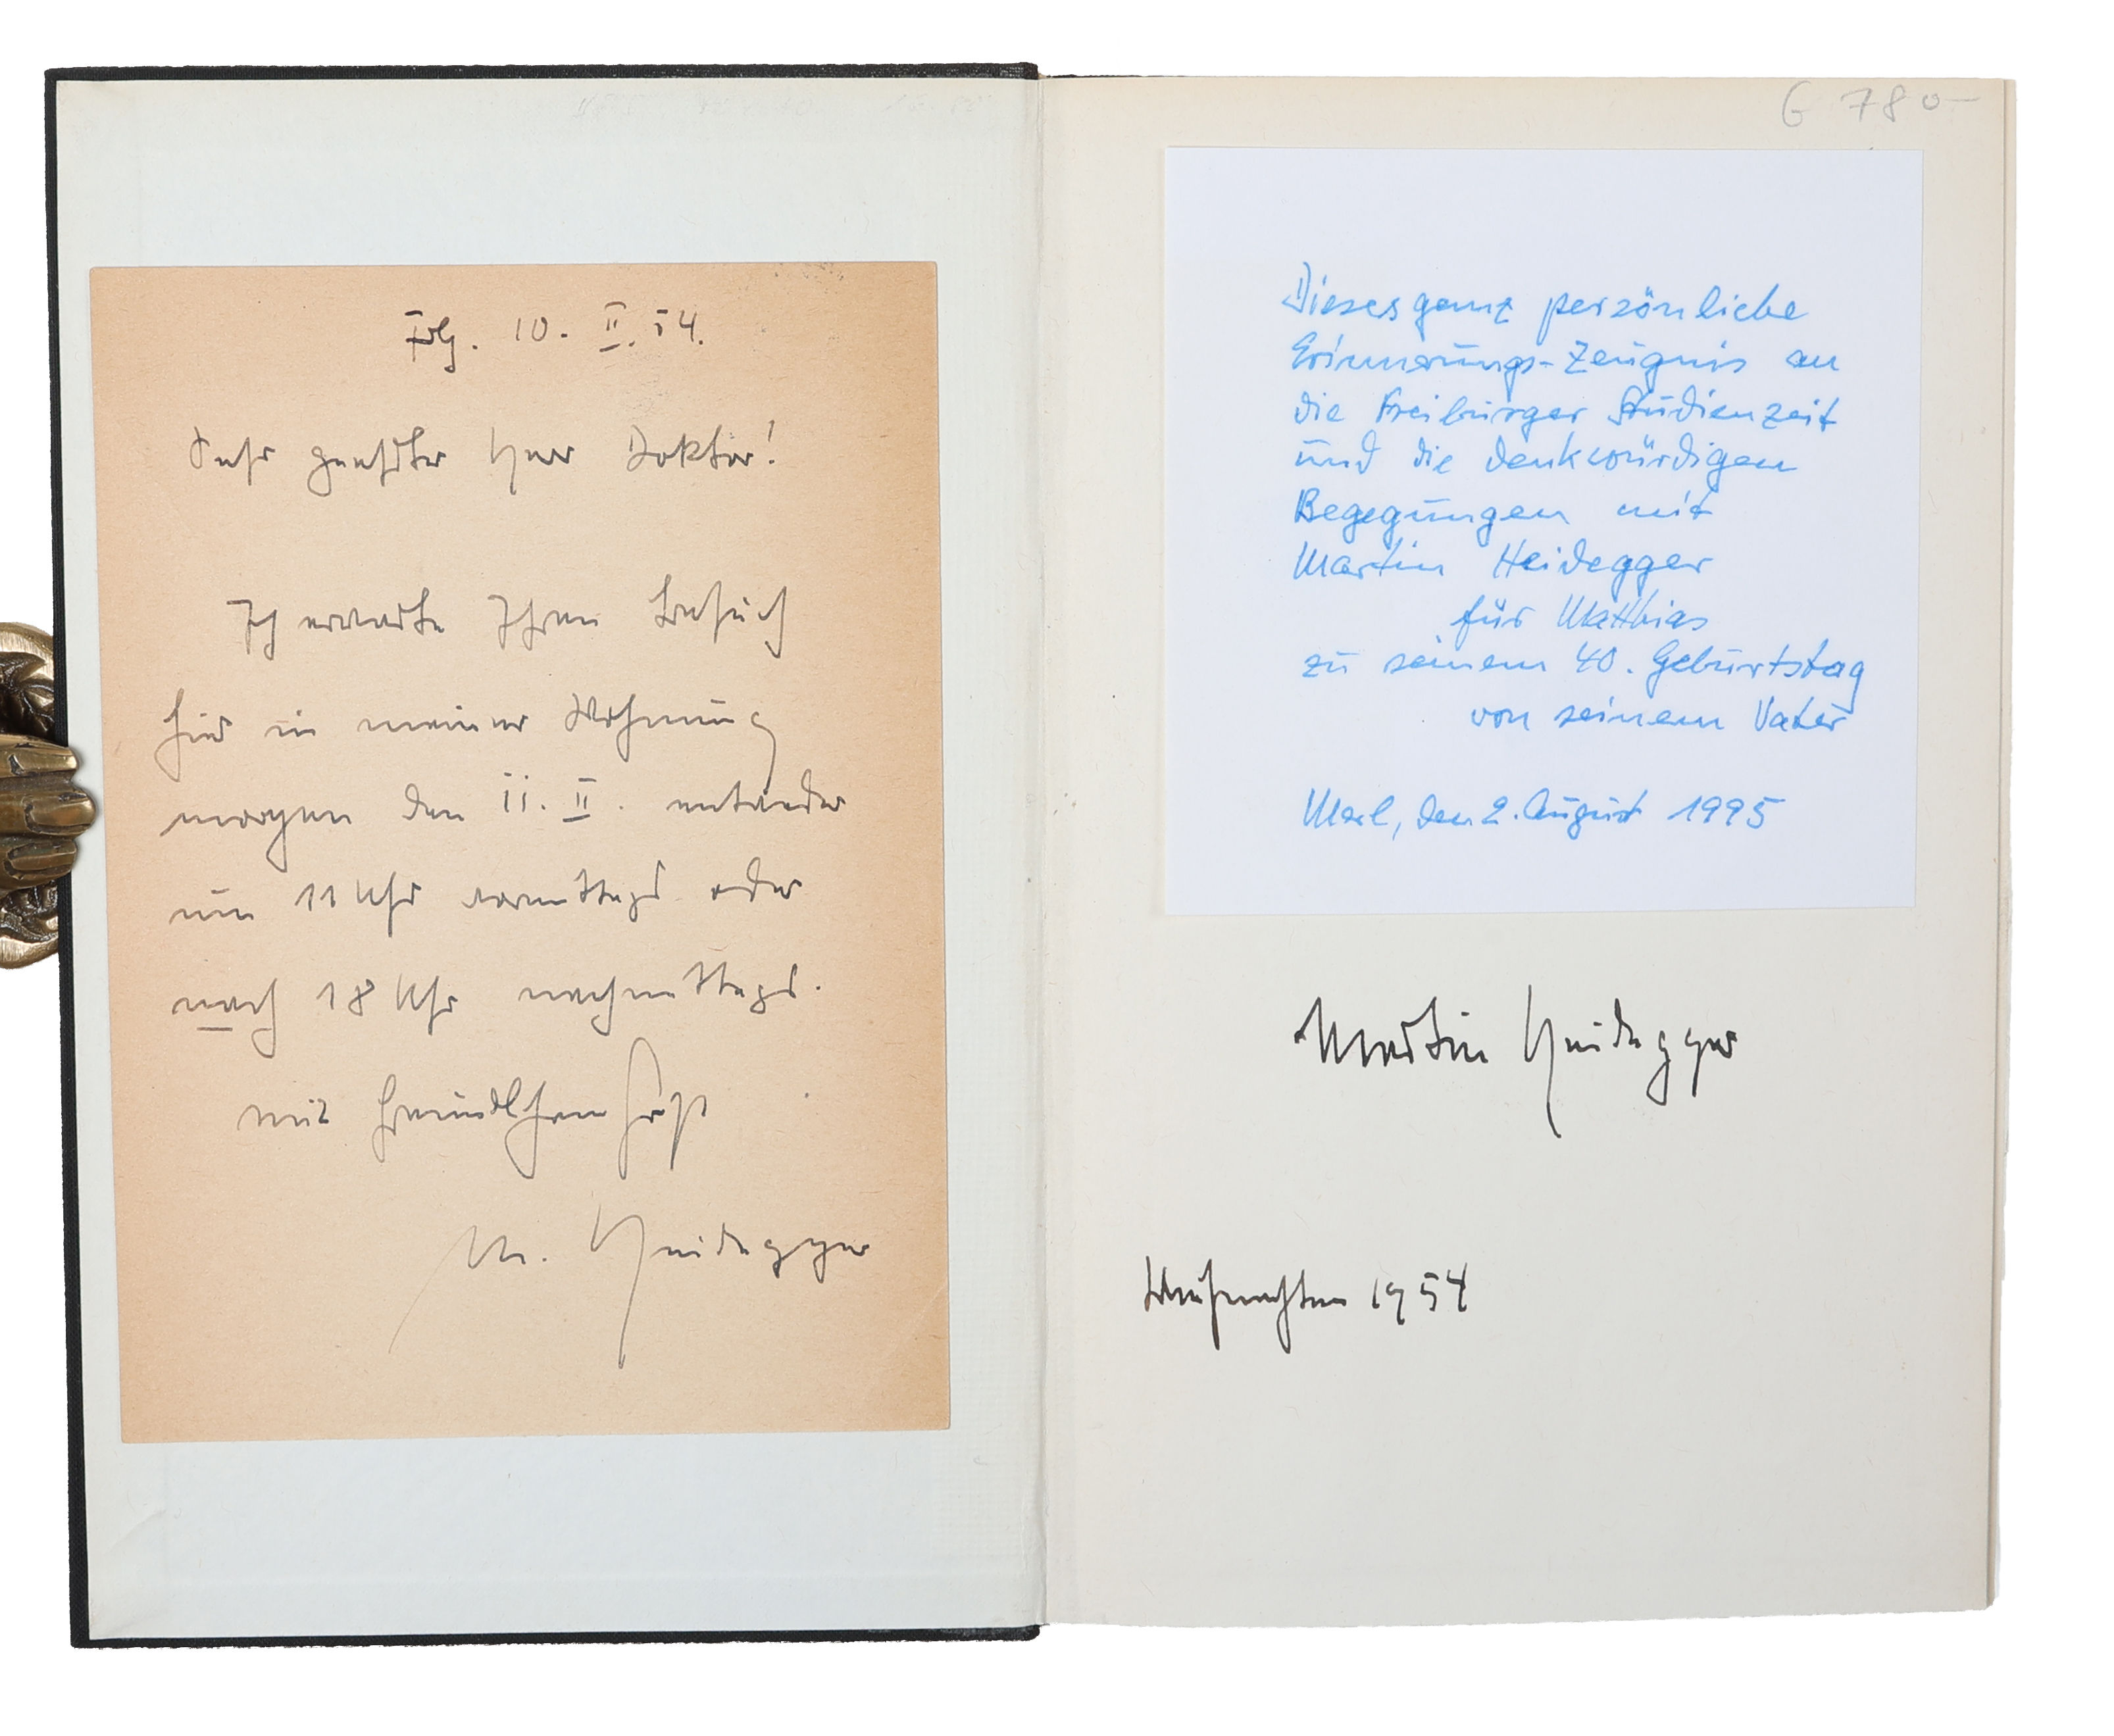 Frbg. 10. II. 54.
Sehr geehrter Herr Doktor!
Ich erwarte Ihren Besuch
hier in meiner Wohnung
morgen den 11. II. entweder
um 11 Uhr vormittags oder
nach 18 Uhr nachmittags.
Mit freundlichem Gruß
M. Heidegger
G 780–
Dieses ganz persönliche
Erinnerungs-Zeugnis an
die Freiburger Studienzeit
und die denkwürdigen
Begegnungen mit
Martin Heidegger
für Matthias
zu seinem 40. Geburtstag
von seinem Vater
Marl, den 2. August 1995
Martin Heidegger
Weihnachten 1954